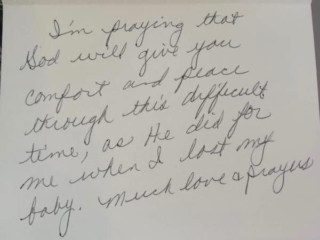 I'm praying that
God will give you
comfort and peace
through this difficult
time, as He did for
me when I lost my
baby. Much love & prayers